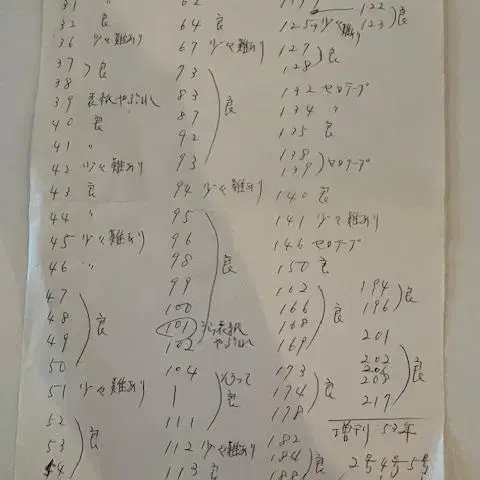 32 良
36 少々難あり
37
38
良
39 表紙やぶれ
40 良
41 〃
42 少々難あり
43 良
44 〃
45 少々難あり
46 〃
47
48
49
50
良
51 少々難あり
52
53
54
良
62
64 良
67 少々難あり
73
83
87
92
93
良
94 少々難あり
95
96
98
99
100
101
102
良
表紙やぶれ
104
111
そろって良
112 少々難あり
113 良
122
123
良
125 少々難あり
127
128
良
132 セロテープ
134 〃
135 良
138
139
セロテープ
140 良
141 少々難あり
146 セロテープ
150 良
162
166
168
169
良
173
174
178
良
182
184
188
良
194
196
良
201
202
208
217
良
増刊 53年
2号4号5号